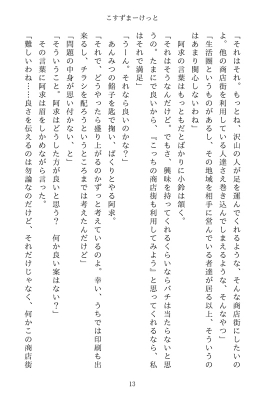 こすずまーけっと
「それはそれ。もっとね、沢山の人が足を運んでくれるような、そんな商店街にしたいの
よ。他の商店街を利用している人達さえ巻き込んでしまえるような、そんなやつ」
「生活圏というものがあるし、その地域を相手に営んでいる者達が居る以上、そういうの
はあまり関心しないわね」
阿求の言葉はもっともだとばかりに小鈴は頷く。
「それはそうなんだけど、でもさ、興味を持ってくれるくらいならバチは当たらないと思
うの。たまにで良いから、『こっちの商店街も利用してみよう』と思ってくれるなら、私
はそれで満足」
「うーん。それなら良いのかな？」
あんみつの餡子を匙で掬い、ぱくりとやる阿求。
「それで、どうやったら盛り上がるのかずっと考えているのよ。幸い、うちでは印刷も出
来るし、チラシを配ろうというところまでは考えたんだけど」
「問題の中身が思い付かない、と」
「そういうこと。阿求はどうした方が良いと思う？　何か良い案はない？」
その言葉に阿求は眉をしかめながら唸った。
「難しいわね……良さを伝えるのは勿論なのだけど、それだけじゃなく、何かこの商店街
13